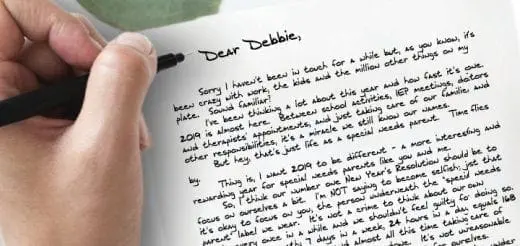 Dear Debbie,
Sorry I haven't been in touch for a while but, as you know, it's
been crazy with work, the kids and the million other things on my
plate. Sound familiar!
I've been thinking a lot about this year and how fast it's gone.
2019 is almost here. Between school activities, IEP meetings, doctors
and therapists' appointments, and just taking care of our families and
other responsibilities, it's a miracle we still know our names.
But hey, that's just life as a special needs parent. Time flies
by.
Thing is, I want 2019 to be different - a more interesting and
rewarding year for special needs parents like you and me.
So, I think our number one New Year's Resolution should be to
focus on ourselves a bit. I'm NOT saying to become selfish; just that
it's okay to focus on you, the person underneath the "special needs
parent" label we wear. It's not a crime to think about our own
every once in a while and we shouldn't feel guilty for doing so.
7 days in a week, 24 hours in a day, equals 168
almost all this time taking care of
It's not unreasonable
ourselves.